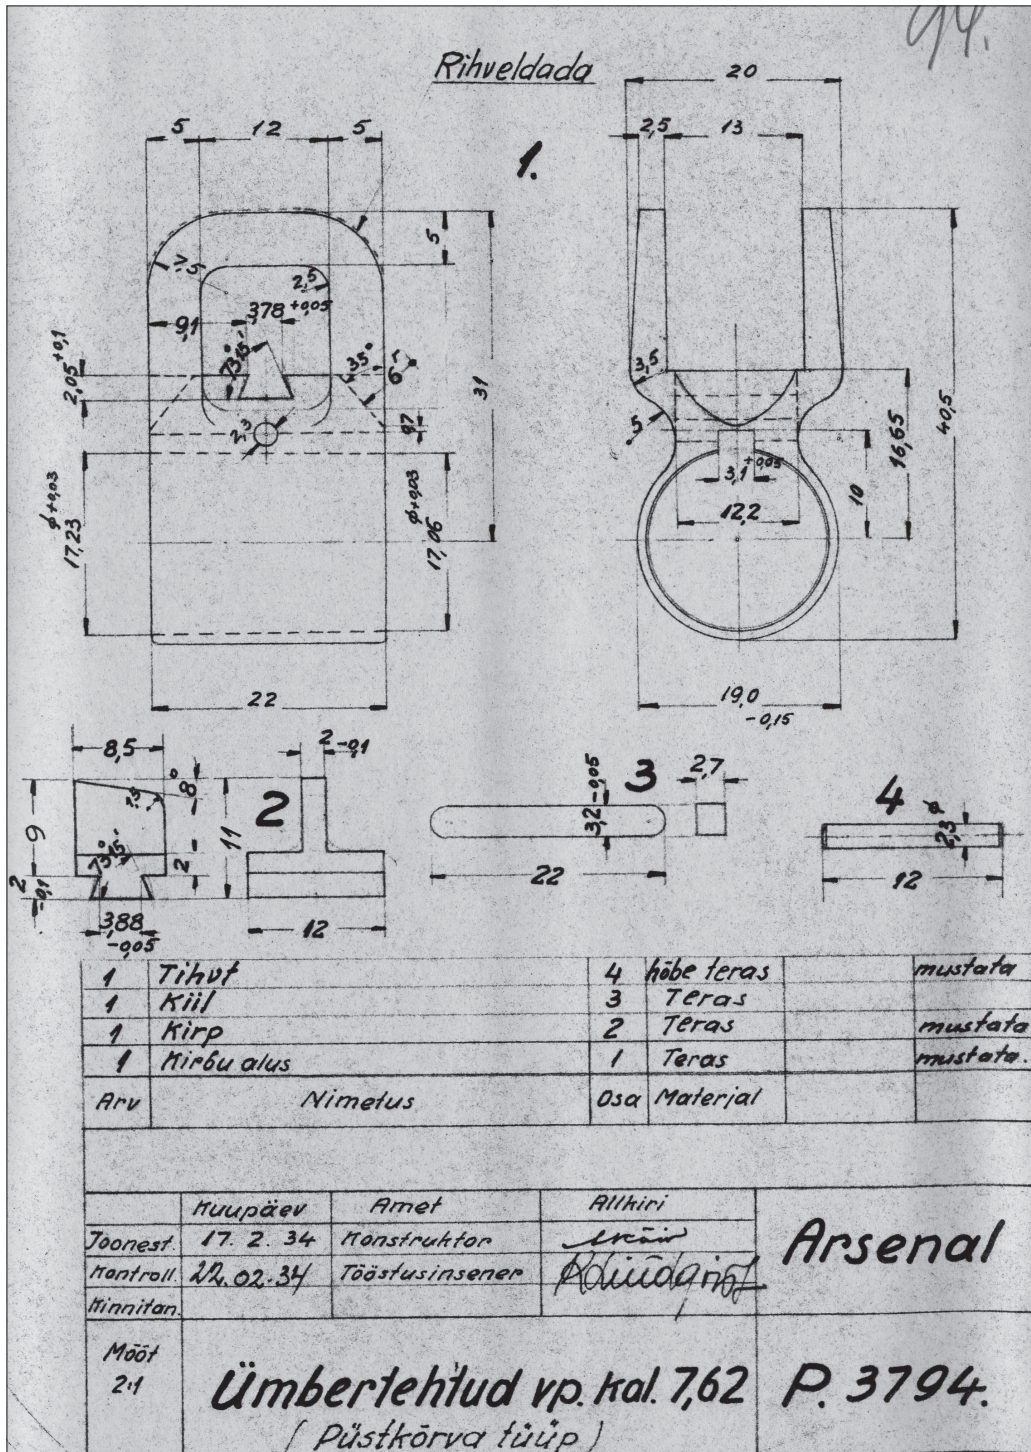 94.
Rihveldada
20
5 12 5
2,5 13
1.
5
7,5
2,5
3,78 +0,05
9,1
73° 15'
35°
6
2,05 +0,1
31
3,5
5
2,3
0,7
40,5
16,65
10
3,1 +0,05
12,2
ϕ +0,03
17,23
ϕ +0,03
17,06
22
19,0
-0,15
8,5
8°
2,5
9
73° 15'
2
2
-0,1
3,88
-0,05
2 -0,1
2
11
12
3
3,2 -0,05
2,7
22
4
2,3 ϕ
12
1 Tihvt 4 hõbe teras mustata
1 Kiil 3 Teras
1 Kirp 2 Teras mustata
1 Kirbu alus 1 Teras mustata.
Arv Nimetus Osa Materjal
Kuupäev Amet Allkiri
Joonest. 17. 2. 34 Konstruktor
Kontroll. 22.02.34 Tööstusinsener
Kinnitan.
Arsenal
Mõõt
2:1
Ümbertehtud vp. kal. 7,62
(Püstkõrva tüüp)
P. 3794.